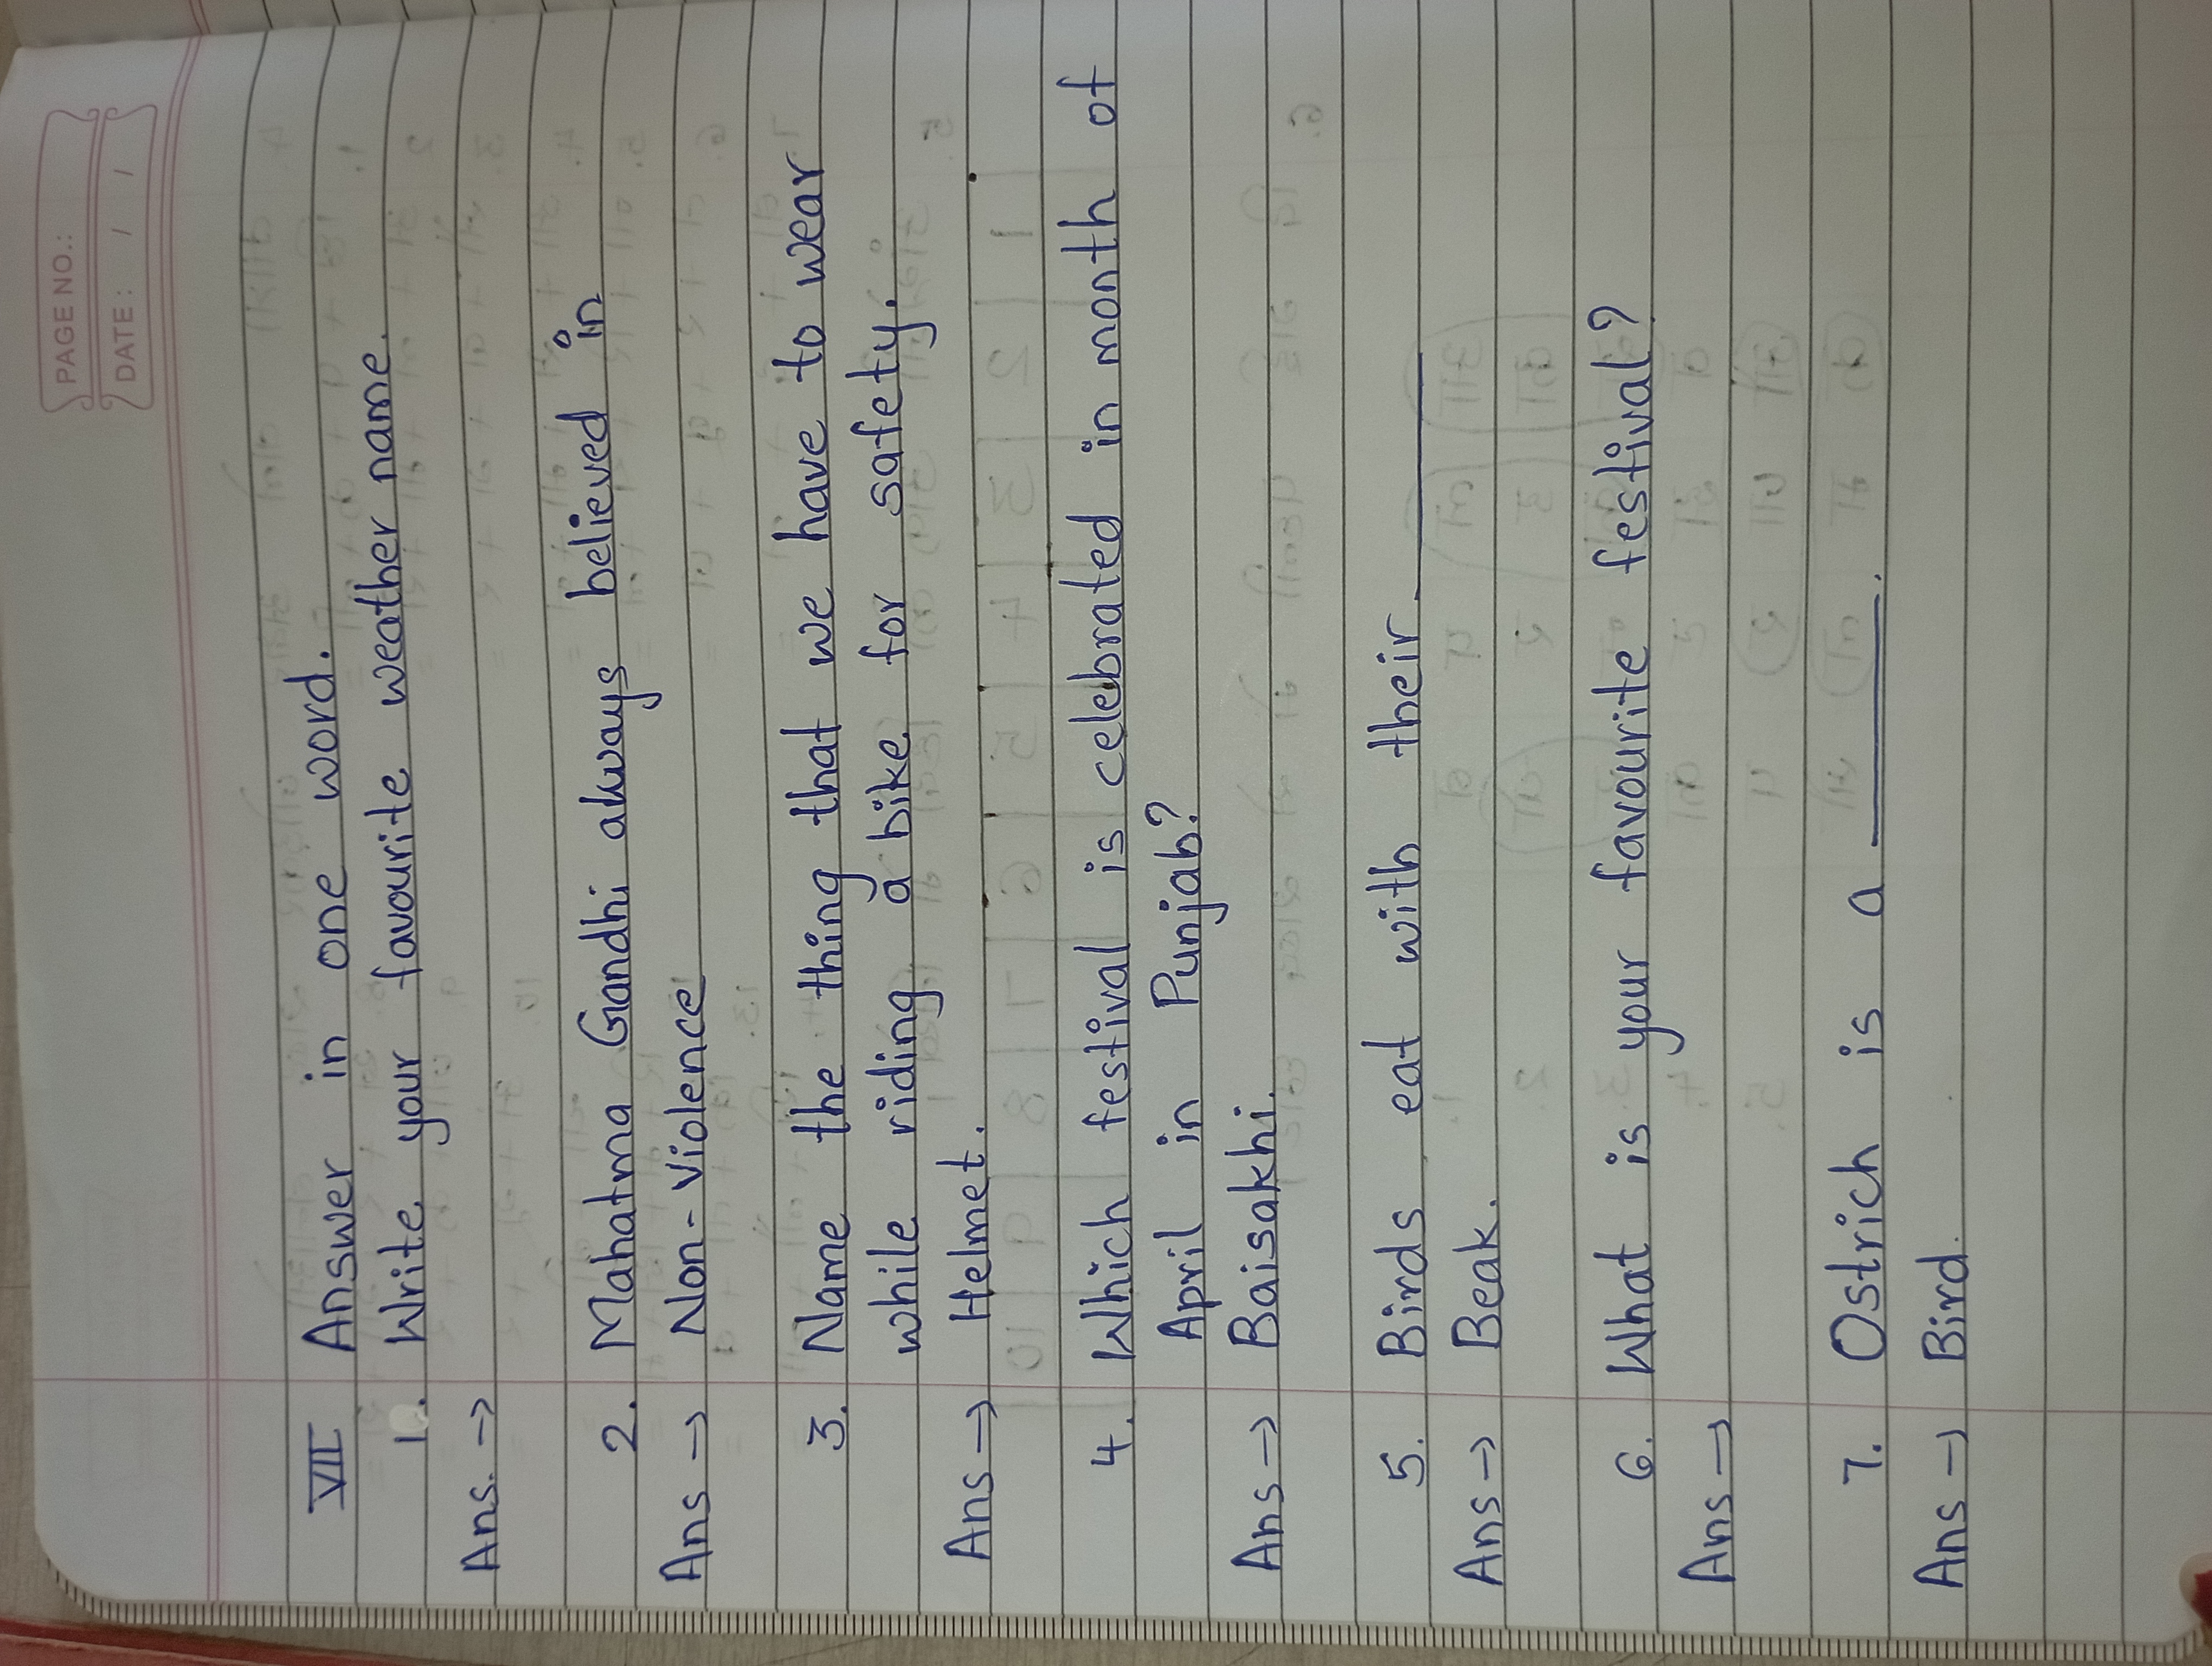 PAGE NO.:
DATE: / /
VII Answer in one word.
1. Write your favourite weather name.
Ans. →
2. Mahatma Gandhi always believed in
Ans → Non-Violence
3. Name the thing that we have to wear
while riding a bike for safety.
Ans → Helmet.
4. Which festival is celebrated in month of
April in Punjab?
Ans → Baisakhi.
5. Birds eat with their ______
Ans → Beak.
6. What is your favourite festival?
Ans →
7. Ostrich is a ______.
Ans → Bird.